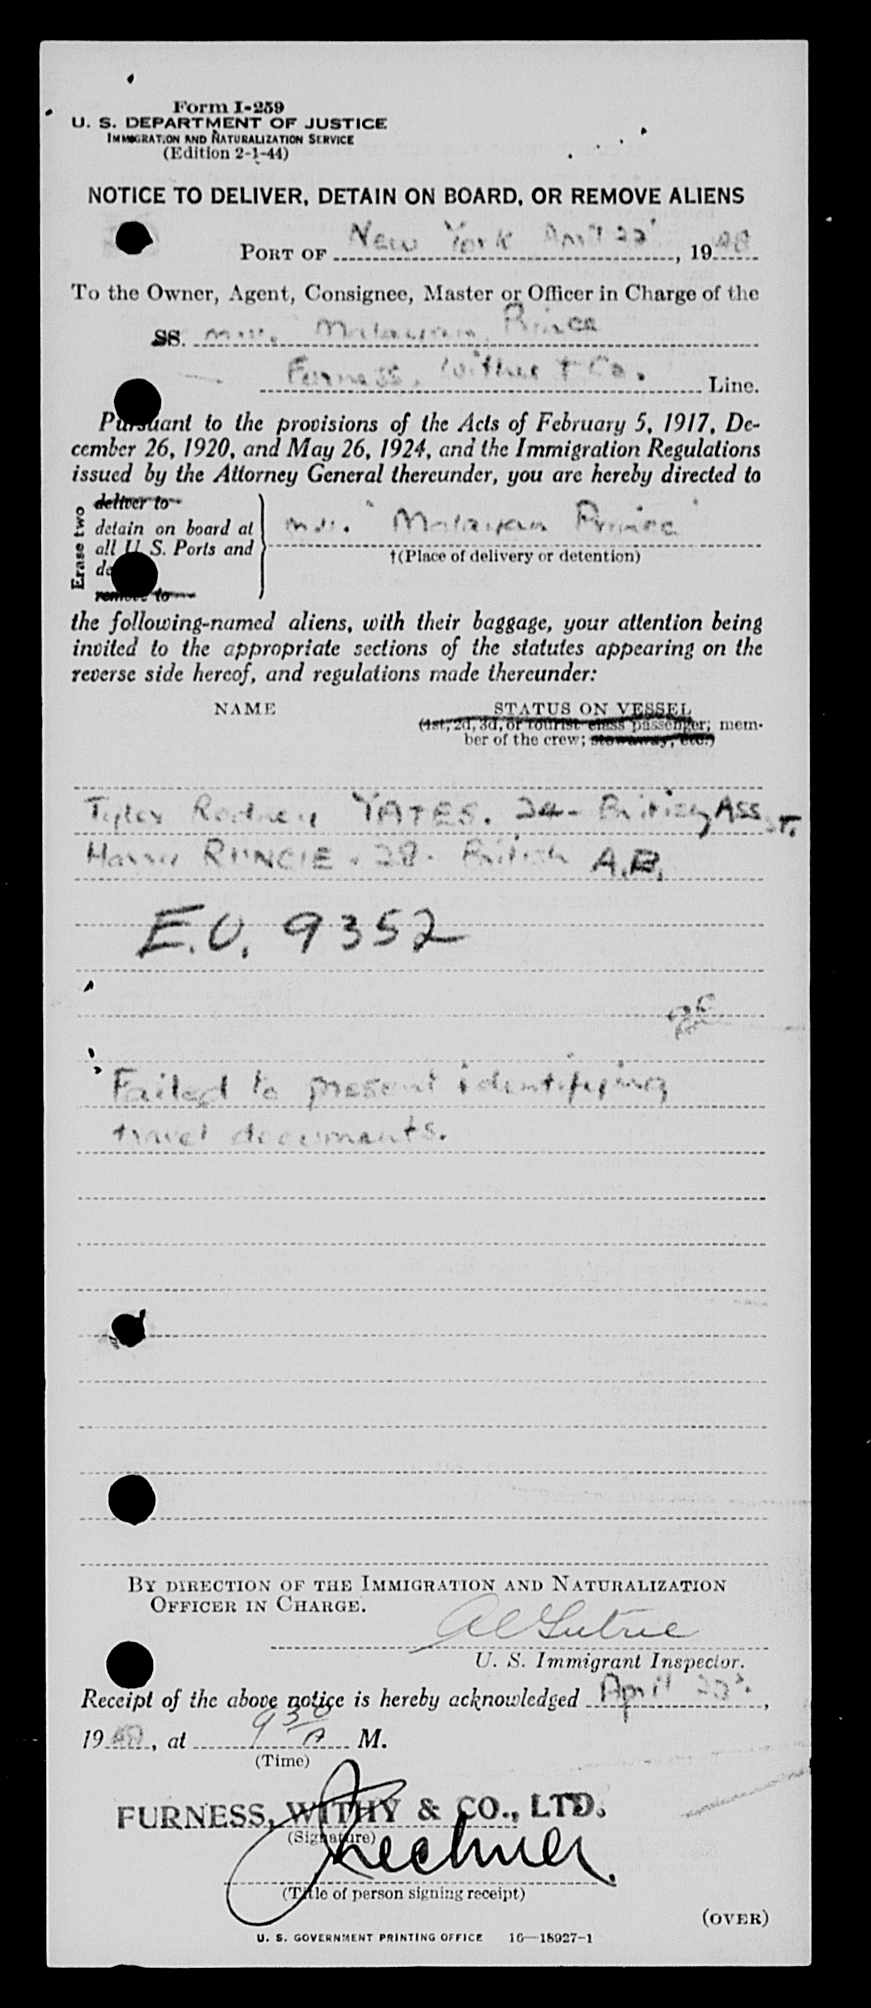 Form I-259
U. S. DEPARTMENT OF JUSTICE
IMMIGRATION AND NATURALIZATION SERVICE
(Edition 2-1-44)
NOTICE TO DELIVER, DETAIN ON BOARD, OR REMOVE ALIENS
PORT OF New York April 22, 1948
To the Owner, Agent, Consignee, Master or Officer in Charge of the
SS. m.v. Malayan Prince
Furness, Withy & Co. Line.
Pursuant to the provisions of the Acts of February 5, 1917, De-
cember 26, 1920, and May 26, 1924, and the Immigration Regulations
issued by the Attorney General thereunder, you are hereby directed to
Erase two
deliver to
detain on board at
all U. S. Ports and
remove to
m.v. "Malayan Prince"
†(Place of delivery or detention)
the following-named aliens, with their baggage, your attention being
invited to the appropriate sections of the statutes appearing on the
reverse side hereof, and regulations made thereunder:
NAME STATUS ON VESSEL
(1st, 2d, 3d, or tourist class passenger; mem-
ber of the crew; stowaway, etc.)
Rodney YATES. 24 - British Asst.
Harry RUNCIE. 28. British A.B.
E.O. 9352
Failed to present identifying
travel documents.
BY DIRECTION OF THE IMMIGRATION AND NATURALIZATION
OFFICER IN CHARGE.
U. S. Immigrant Inspector.
Receipt of the above notice is hereby acknowledged April 22,
1948, at 9 30 A M.
(Time)
FURNESS, WITHY & CO., LTD.
(Signature)
(Title of person signing receipt)
(OVER)
U. S. GOVERNMENT PRINTING OFFICE 16—18927-1